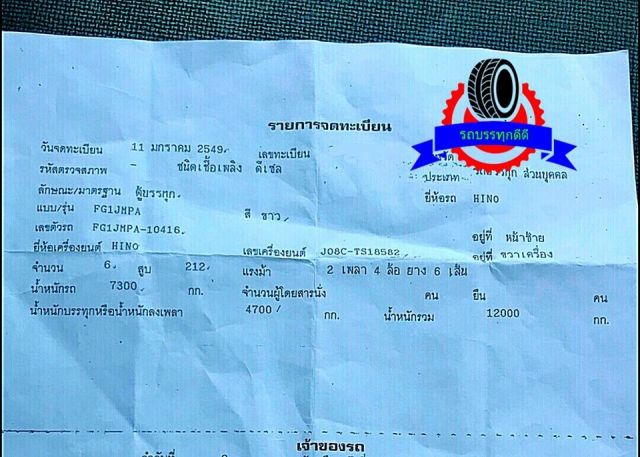 รายการจดทะเบียน
รถบรรทุกดีดี
วันจดทะเบียน 11 มกราคม 2549 เลขทะเบียน
รหัสตรวจสภาพ - ชนิดเชื้อเพลิง ดีเซล ประเภท รถบรรทุก ส่วนบุคคล
ลักษณะ/มาตรฐาน ตู้บรรทุก ยี่ห้อรถ HINO
แบบ/รุ่น FG1JMPA สี ขาว
เลขตัวรถ FG1JMPA-10416 อยู่ที่ หน้าซ้าย
ยี่ห้อเครื่องยนต์ HINO เลขเครื่องยนต์ J08C-TS18582 อยู่ที่ ขวาเครื่อง
จำนวน 6 สูบ 212 แรงม้า 2 เพลา 4 ล้อ ยาง 6 เส้น
น้ำหนักรถ 7300 กก. จำนวนผู้โดยสารนั่ง คน ยืน คน
น้ำหนักบรรทุกหรือน้ำหนักลงเพลา 4700 กก. น้ำหนักรวม 12000 กก.
เจ้าของรถ